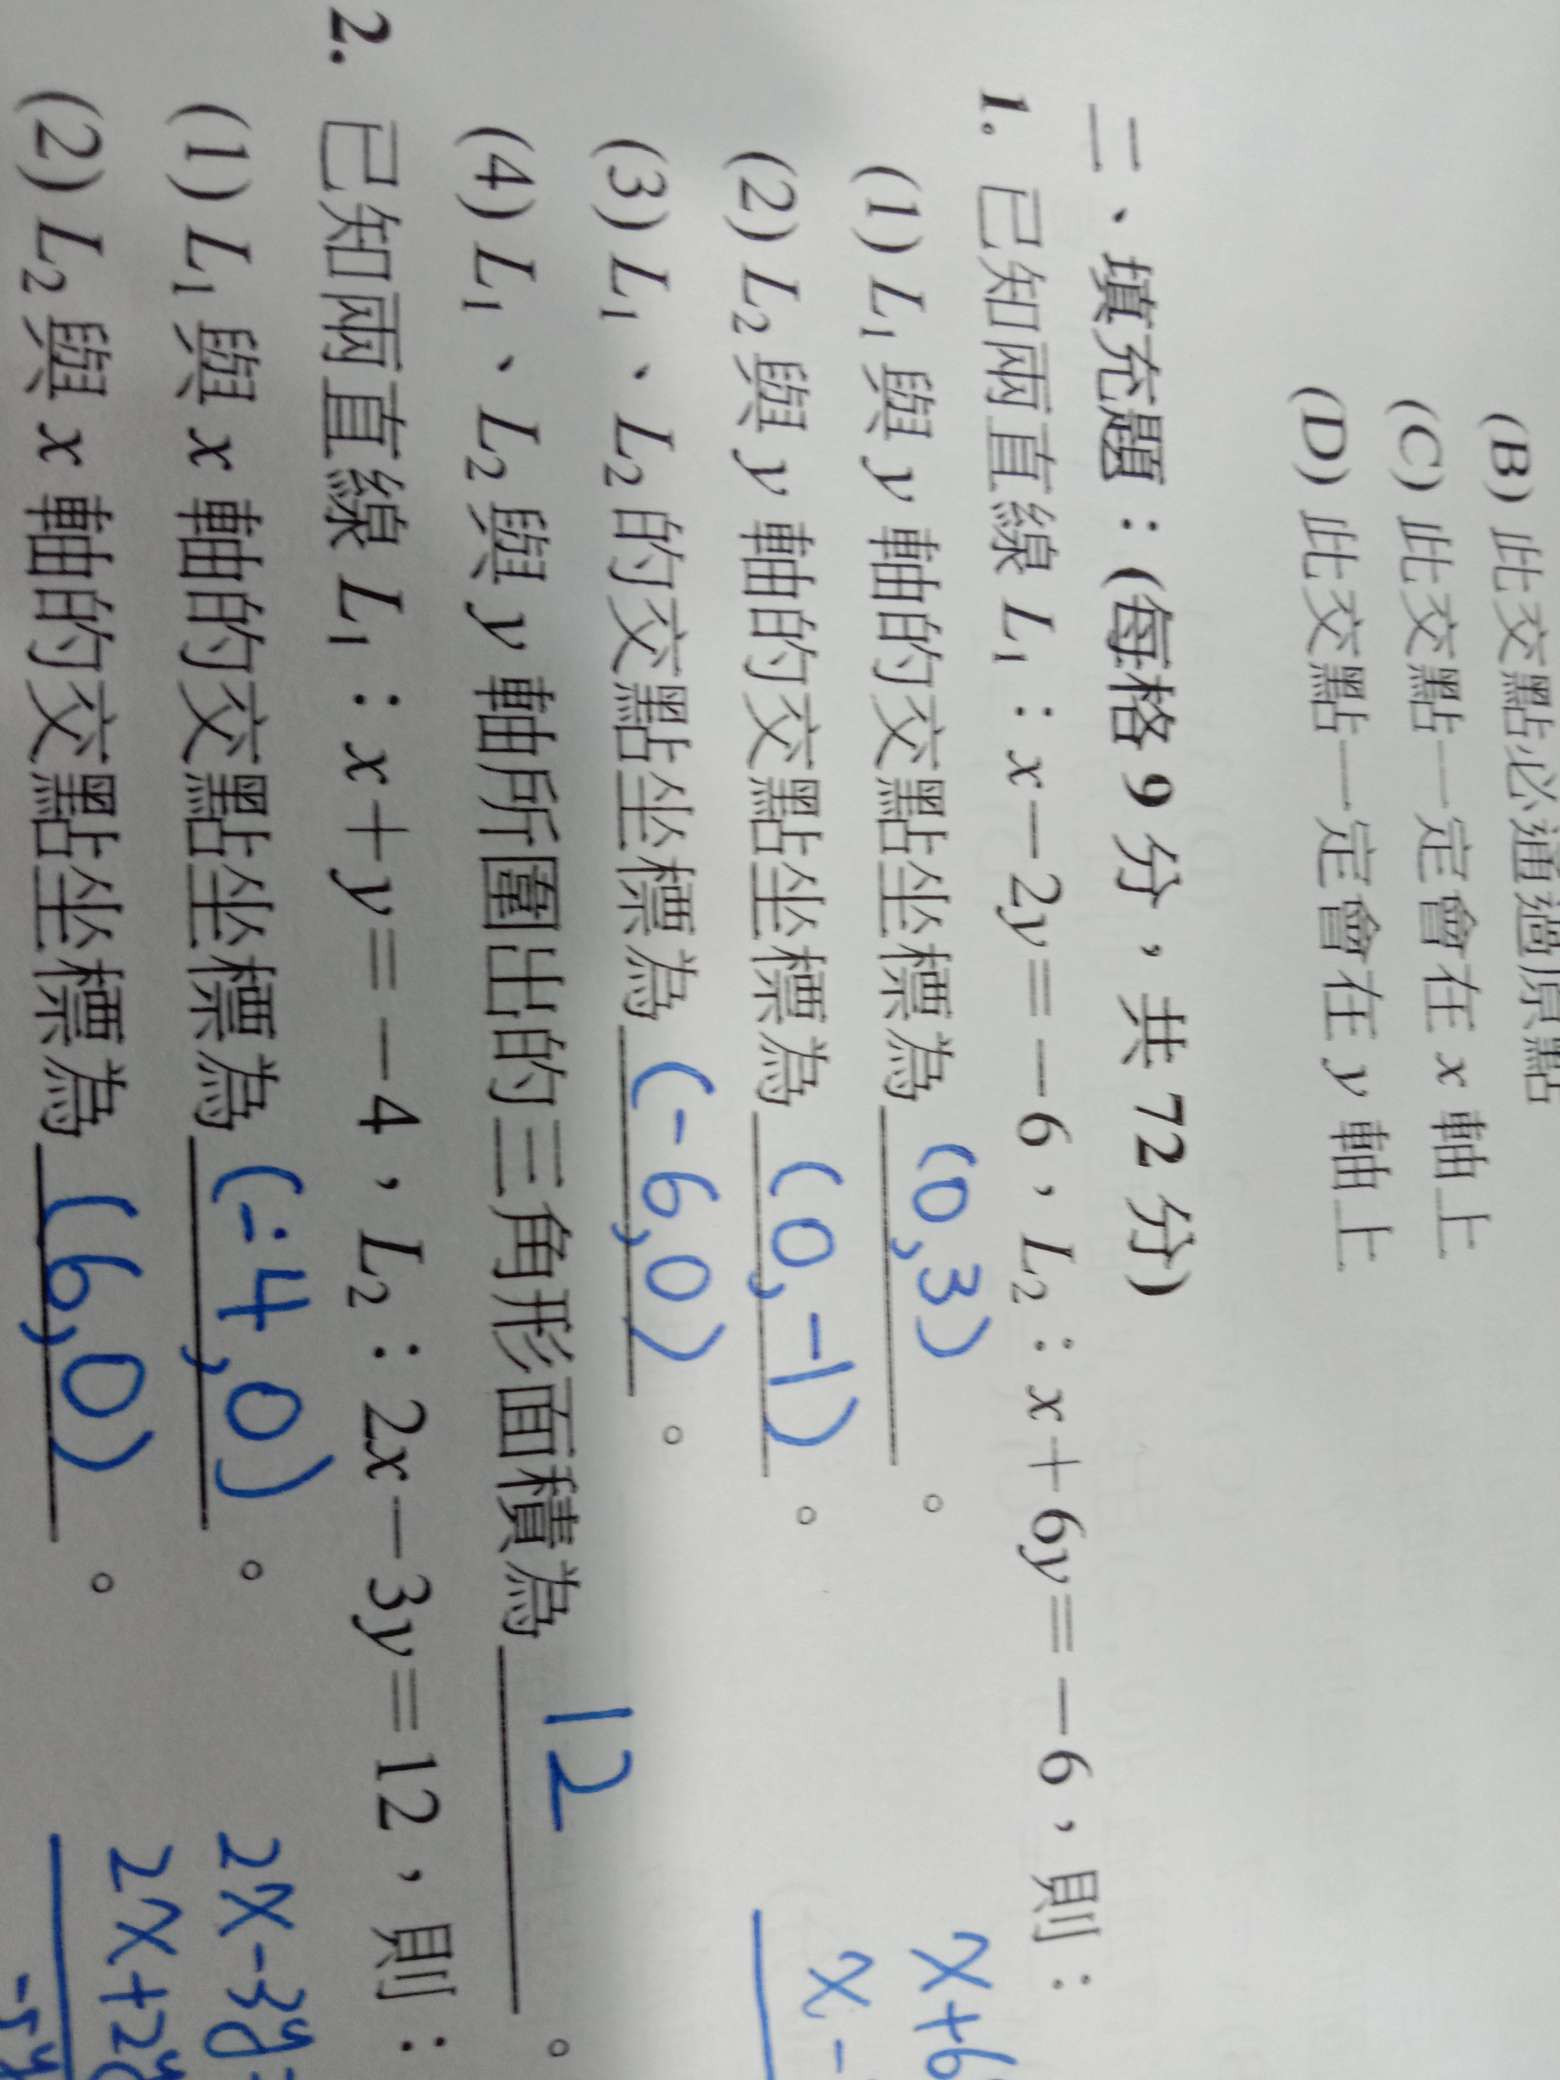 (B) 此交點必通過原點
(C) 此交點一定會在 x 軸上
(D) 此交點一定會在 y 軸上
二、填充題：(每格 9 分，共 72 分)
1. 已知兩直線 L₁：x－2y＝－6，L₂：x＋6y＝－6，則：
(1) L₁ 與 y 軸的交點坐標為 (0,3) 。
(2) L₂ 與 y 軸的交點坐標為 (0,-1) 。
(3) L₁、L₂ 的交點坐標為 (-6,0) 。
(4) L₁、L₂ 與 y 軸所圍出的三角形面積為 12 。
x+6
x-
2. 已知兩直線 L₁：x＋y＝－4，L₂：2x－3y＝12，則：
(1) L₁ 與 x 軸的交點坐標為 (-4,0) 。
(2) L₂ 與 x 軸的交點坐標為 (6,0) 。
2x-3y=
2x+2y
-5y